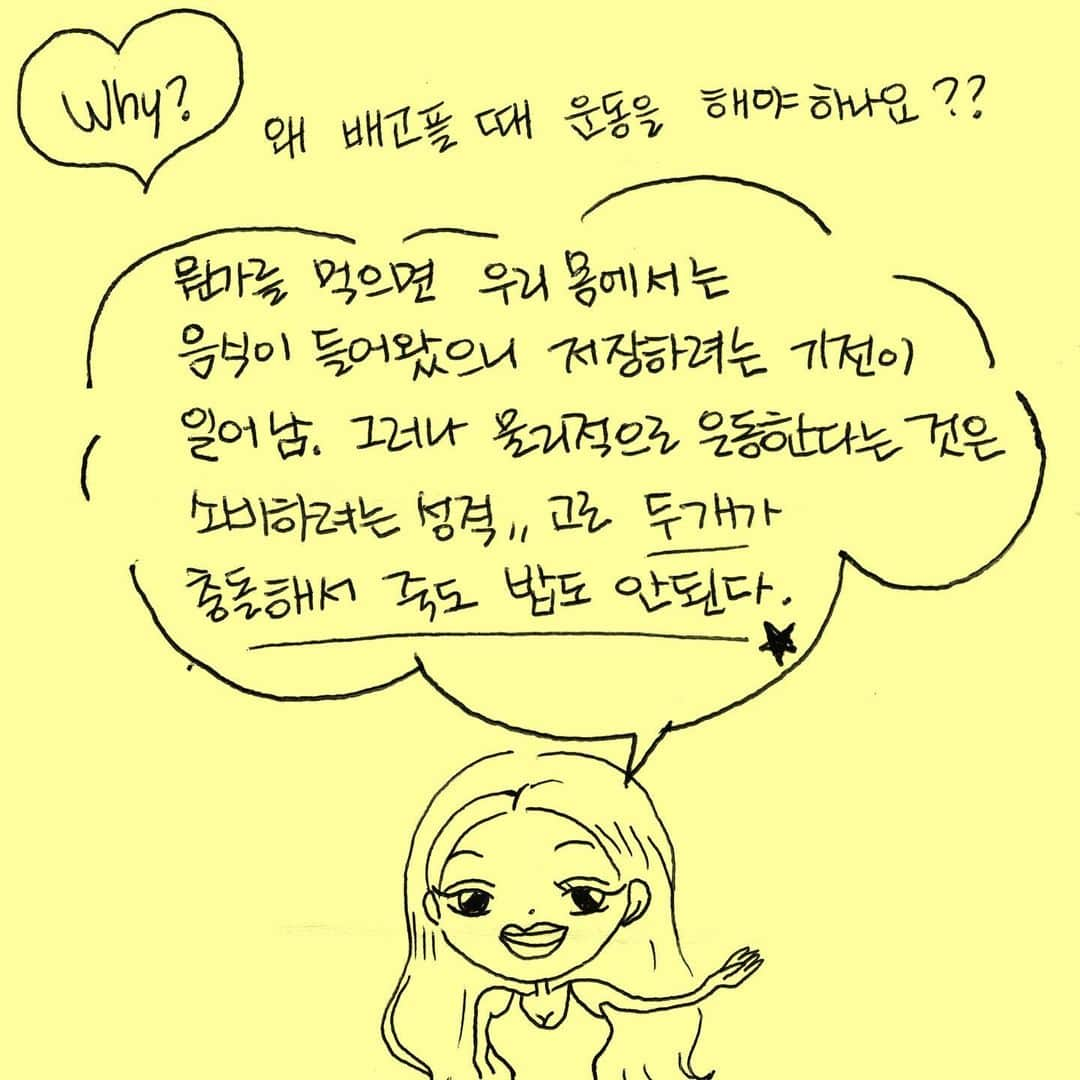 Why?
왜 배고플 때 운동을 해야하나요??
뭔가를 먹으면 우리 몸에서는
음식이 들어왔으니 저장하려는 기전이
일어남. 그러나 물리적으로 운동한다는 것은
소비하려는 성격,, 고로 두개가
충돌해서 죽도 밥도 안된다.